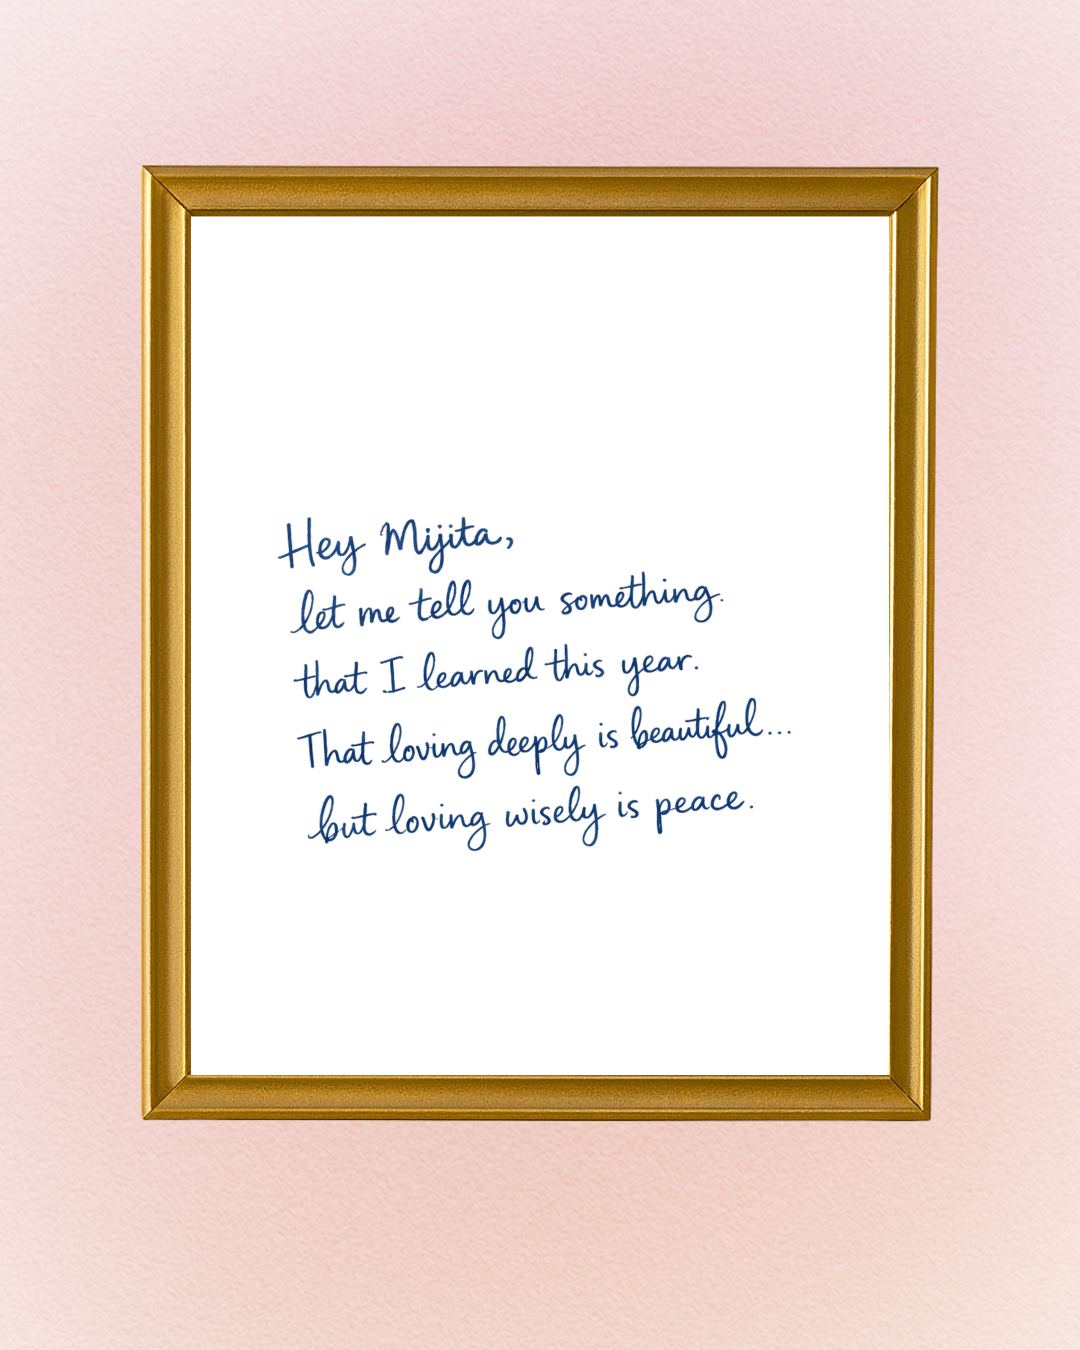 Hey Mijita,
let me tell you something.
that I learned this year.
That loving deeply is beautiful...
but loving wisely is peace.